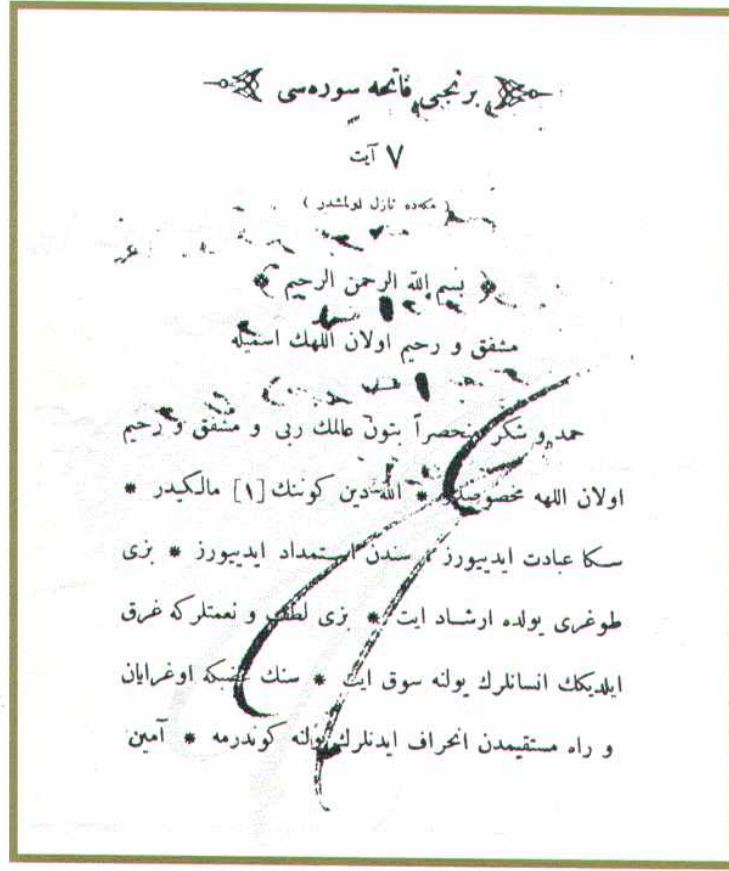 برنجی فاتحه سوره‌سی
٧ آیت
( مكه‌ده نازل اولمشدر )
بسم الله الرحمن الرحیم
مشفق و رحیم اولان اللهك اسمیله
حمد و شكر منحصراً بتون عالمك ربی و مشفق و رحیم
اولان اللهه مخصوصدر * الله دین كوننك [١] مالكیدر *
سكا عبادت ایدییورز، سندن استمداد ایدییورز * بزی
طوغری یولده ارشاد ایت * بزی لطف و نعمتلركه غرق
ایلدیكك انسانلرك یولنه سوق ایت * سنك غضبكه اوغرایان
و راه مستقیمدن انحراف ایدنلرك یولنه كوندرمه * آمین